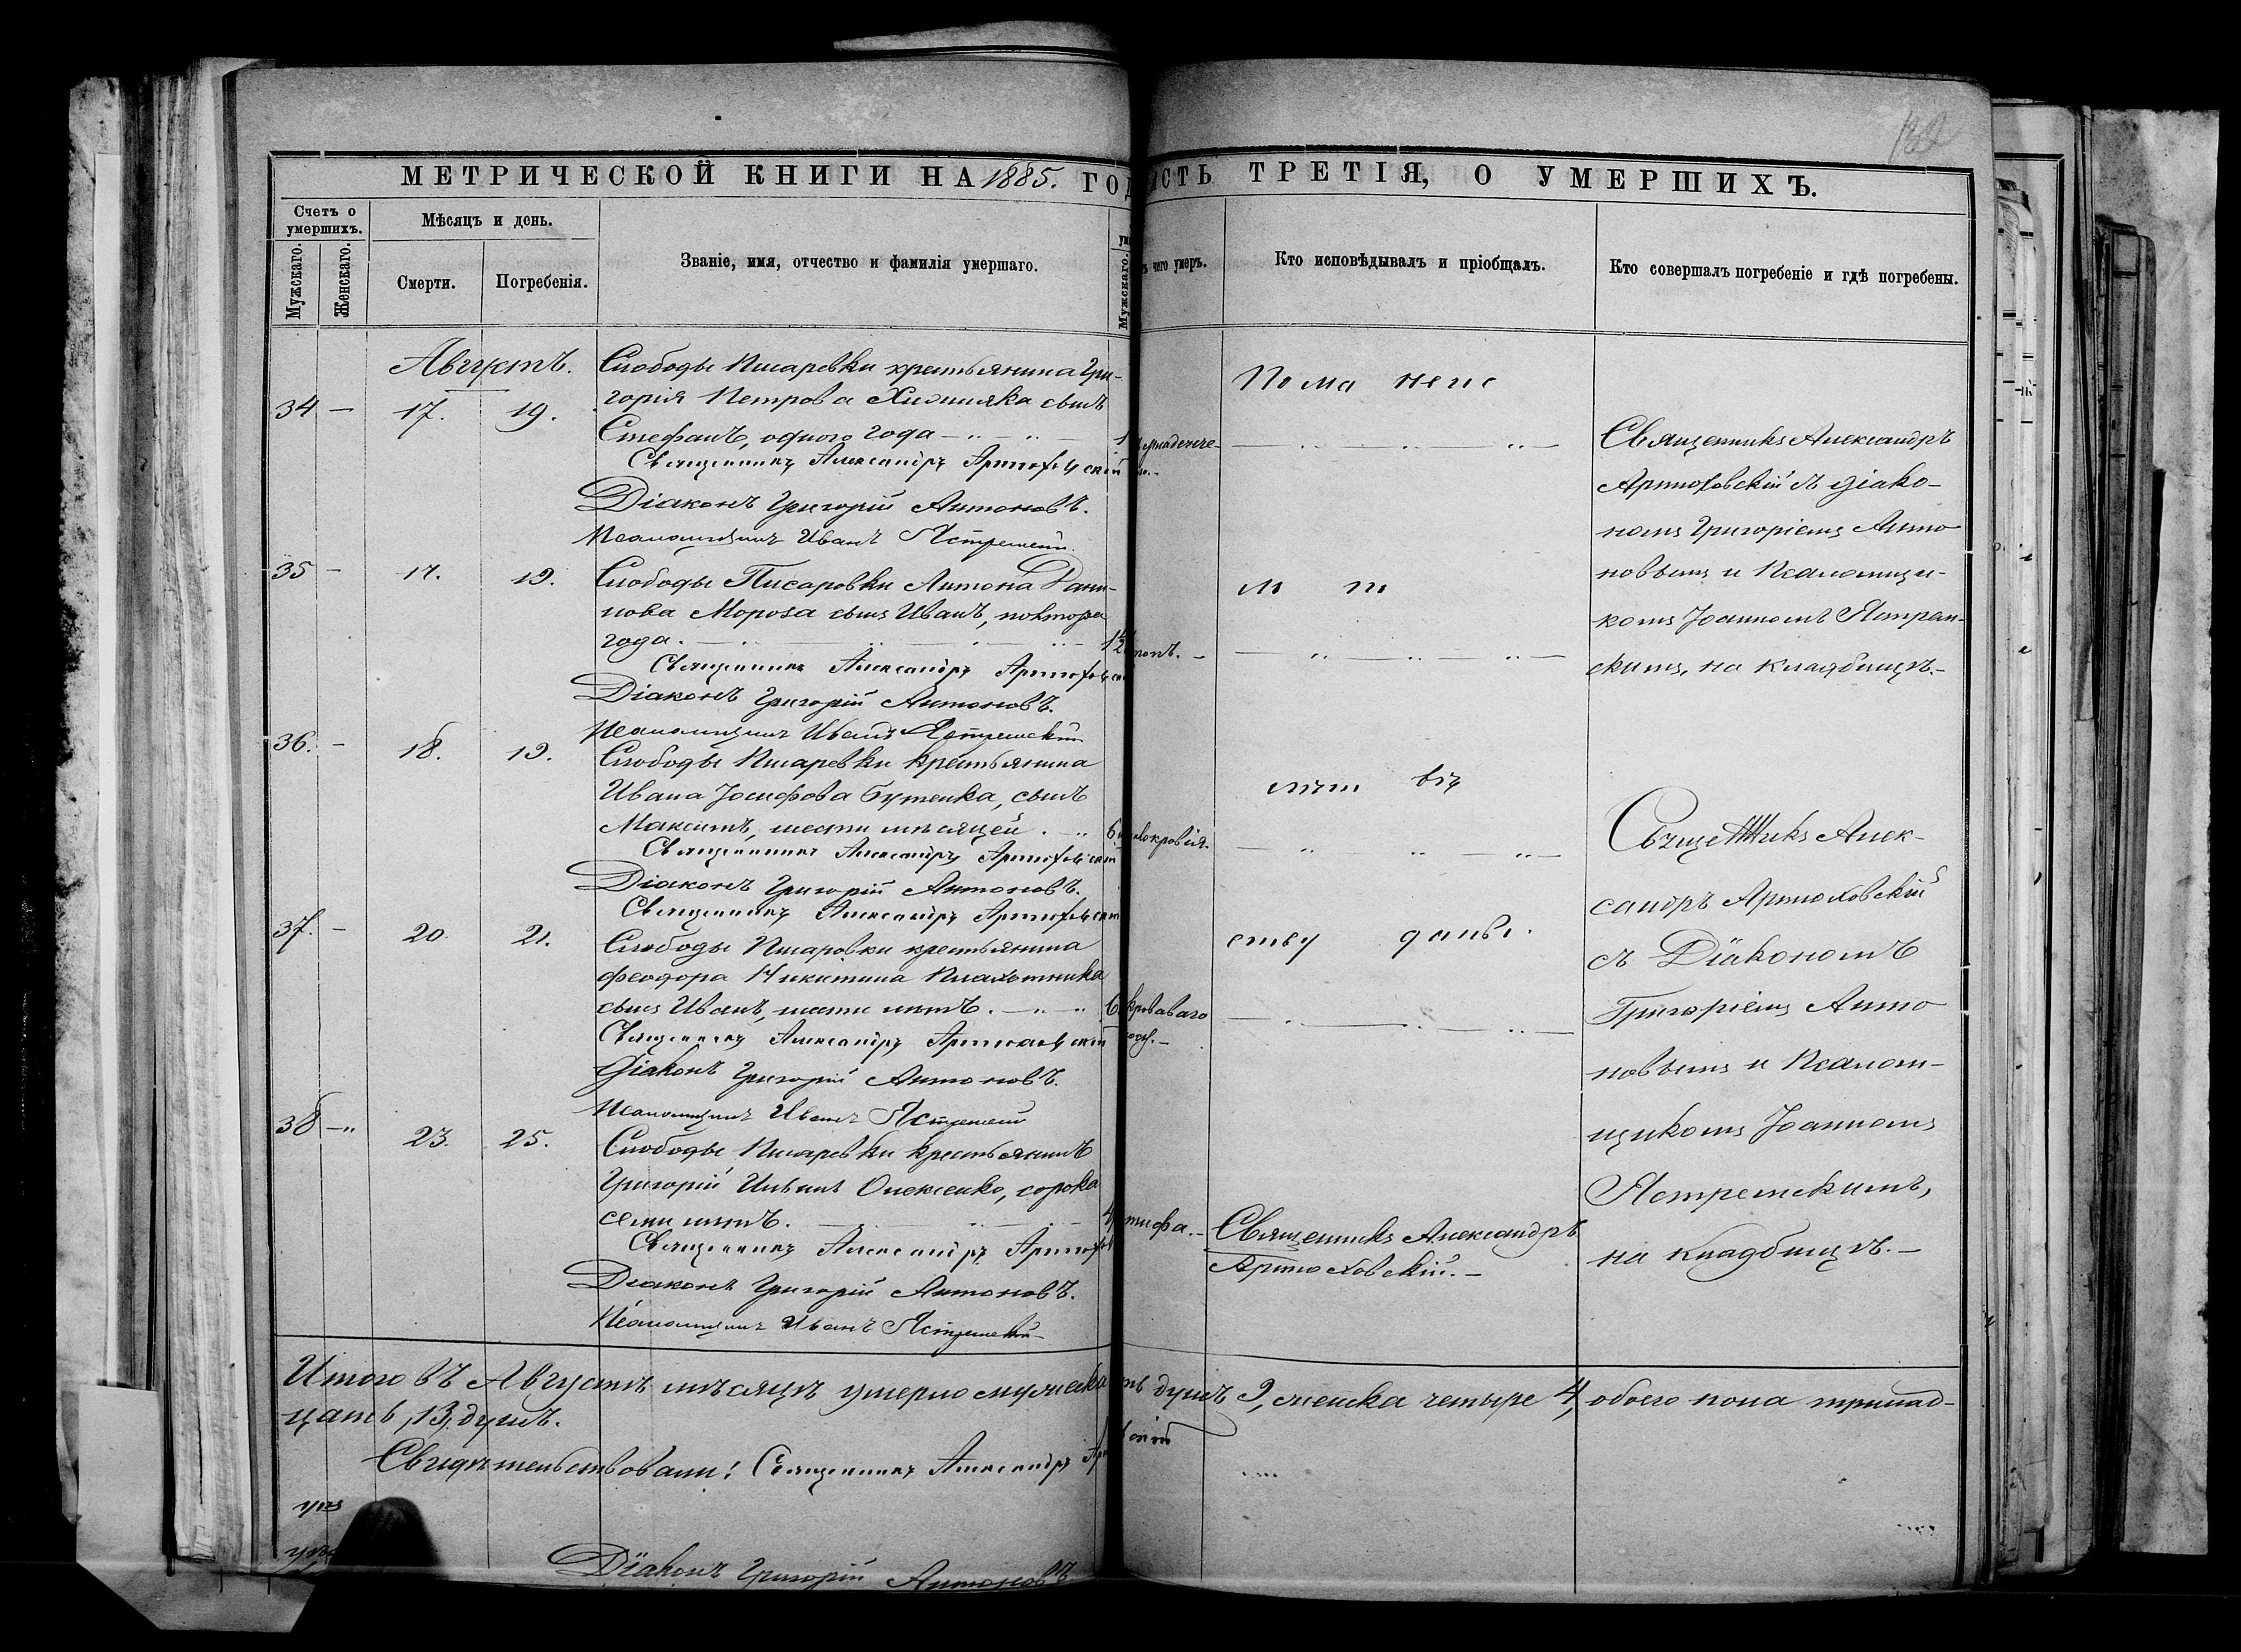 МЕТРИЧЕСКОЙ КНИГИ НА 1885. ГОД
Счетъ о умершихъ.
Мужскаго.
Женскаго.
Мѣсяцъ и день.
Смерти.
Погребенія.
Званіе, имя, отчество и фамилія умершаго.
Мужскаго.
Августъ.
34 — 17. 19.
Слободы Писаревки крестьянина Гри-
горія Петрова сынъ
Стефанъ, одного года 1
Священникъ Александръ Артюховскій
Діаконъ Григорій Антоновъ.
Псаломщикъ Иванъ Ястремскій
35 — 17. 19.
Слободы Писаровки Антона Дани-
лова Мороза сынъ Иванъ, полтора
года. 1½
Священникъ Александръ Артюховскій
Діаконъ Григорій Антоновъ.
Псаломщикъ Иванъ Ястремскій
36. — 18. 19.
Слободы Писаревки крестьянина
Ивана Іосифова Бутенка, сынъ
Максимъ, шести мѣсяцей. 6
Священникъ Александръ Артюховскій
Діаконъ Григорій Антоновъ.
Священникъ Александръ Артюховскій
37. — 20. 21.
Слободы Писаровки крестьянина
Феодора Никитина Плахотника
сынъ Иванъ, шести лѣтъ. 6
Священникъ Александръ Артюховскій
Діаконъ Григорій Антоновъ.
Псаломщикъ Иванъ Ястремскій
38 — 23. 25.
Слободы Писаревки крестьянинъ
Григорій Ильинъ Олексенко, сорока
семи лѣтъ. 4
Священникъ Александръ Артюхов
Діаконъ Григорій Антоновъ.
Псаломщикъ Иванъ Ястремскій
Итого въ Августѣ мѣсяцѣ умерло мужеска
цать, 13, душъ.
Свидѣтельствовали: Священникъ Александръ Арт
Діаконъ Григорій Антоновъ
132
СТЬ ТРЕТІЯ, О УМЕРШИХЪ.
чего умеръ.
Кто исповѣдывалъ и пріобщалъ.
Кто совершалъ погребеніе и гдѣ погребены.
младенче-
По ма неис
м п
локровія.
лѣт
кроваваго
ству даны.
тифа.
Священникъ Александръ
Артюховскій.
Священникъ Александръ
Артюховскій съ діако-
номъ Григоріемъ Анто
новымъ и Псаломщи-
комъ Іоанномъ Ястрем-
скимъ, на кладбищѣ.
Священникъ Алек-
сандръ Артюховскій
съ Діакономъ
Григоріемъ Анто
новымъ и Псалом-
щикомъ Іоанномъ
Ястремскимъ,
на кладбищѣ.
душъ 9, женска четыре 4, обоего пола тринад-